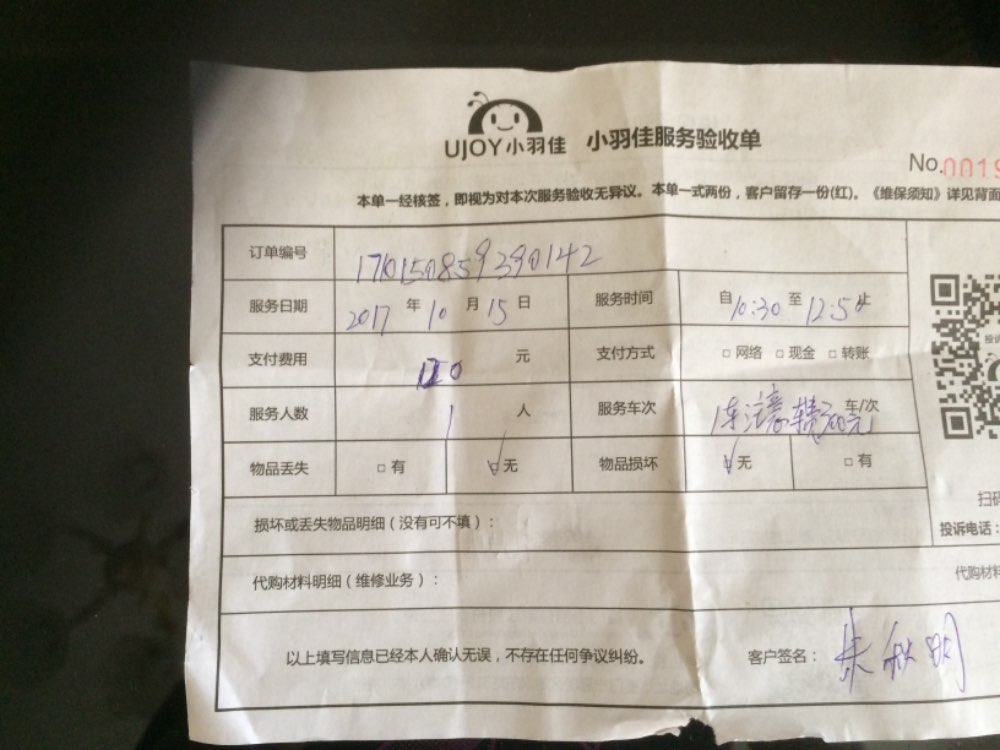 UJOY小羽佳 小羽佳服务验收单
No.0019
本单一经核签，即视为对本次服务验收无异议。本单一式两份，客户留存一份(红)。《维保须知》详见背面
订单编号 1710150859390142
服务日期 2017 年 10 月 15 日 服务时间 自 10:30 至 12:50 止
支付费用 元 支付方式 □ 网络 □ 现金 □ 转账
服务人数 1 人 服务车次 车/次
物品丢失 □ 有 □ 无 物品损坏 □ 无 □ 有
扫码
损坏或丢失物品明细（没有可不填）：
投诉电话：
代购材料明细（维修业务）：
代购材料
以上填写信息已经本人确认无误，不存在任何争议纠纷。 客户签名： 朱秋明